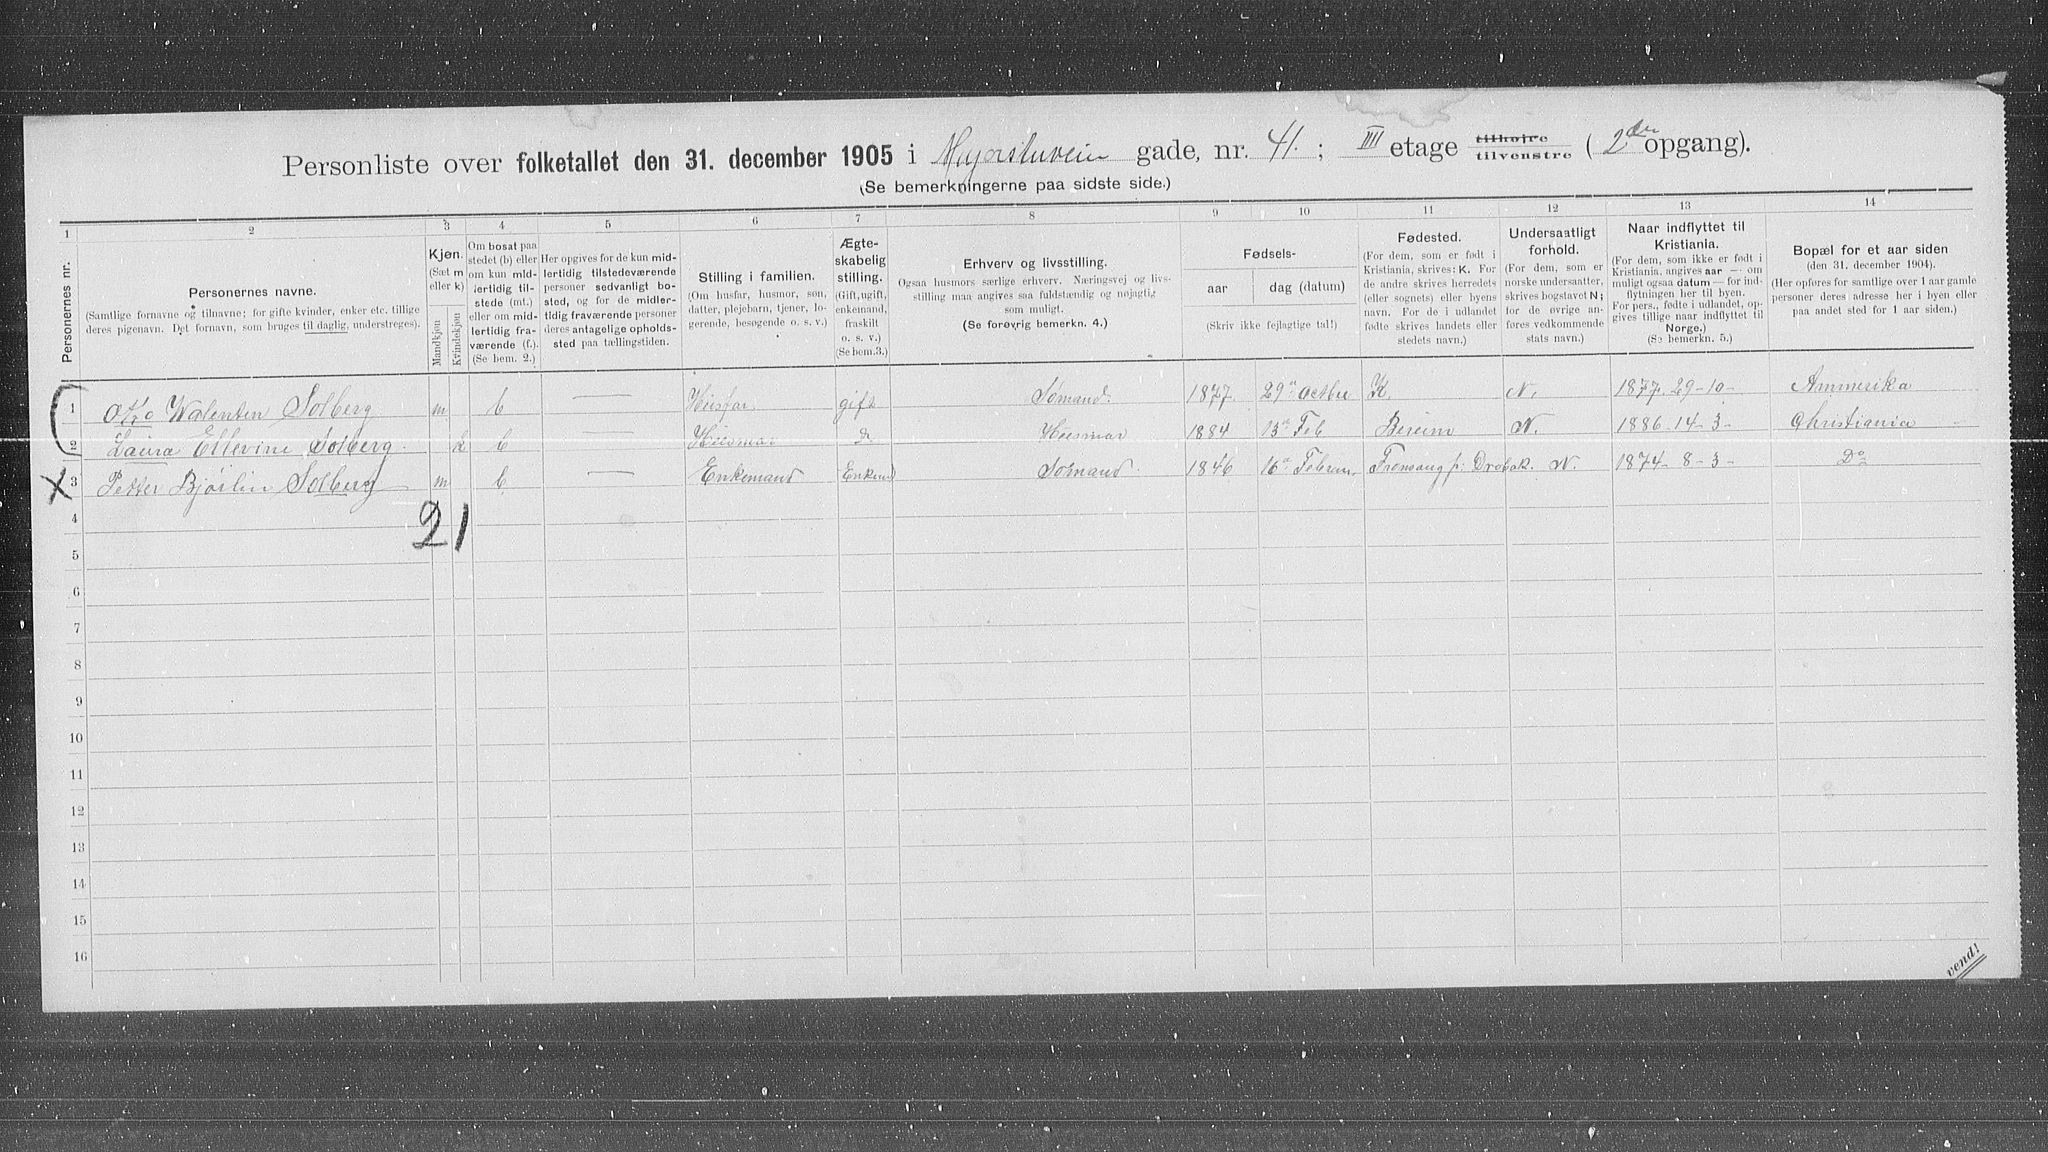 Personliste over folketallet den 31. december 1905 i Majorstuvein gade, nr. 41. ; III etage tilhøjre tilvenstre ( 2den opgang).
(Se bemerkningerne paa sidste side.)
1 2 3 4 5 6 7 8 9 10 11 12 13 14
Personernes nr.
Personernes navne.
(Samtlige fornavne og tilnavne; for gifte kvinder, enker etc. tillige
deres pigenavn. Det fornavn, som bruges til daglig, understreges).
Kjøn.
(Sæt m
eller k)
Mandkjøn
Kvindekjøn
Om bosat paa
stedet (b) eller
om kun mid-
lertidig til-
stede (mt.)
eller om mid-
lertidig fra-
værende (f.).
(Se bem. 2.)
Her opgives for de kun mid-
lertidig tilstedeværende
personer sedvanligt bo-
sted, og for de midler-
tidig fraværende personer
deres antagelige opholds-
sted paa tællingstiden.
Stilling i familien.
(Om husfar, husmor, søn,
datter, plejebarn, tjener, lo-
gerende, besøgende o. s. v.)
Ægte-
skabelig
stilling.
(Gift, ugift,
enkemand,
fraskilt
o. s. v.)
(Se bem.3.)
Erhverv og livsstilling.
Ogsaa husmors særlige erhverv. Næringsvej og livs-
stilling maa angives saa fuldstændig og nøjagtig
som muligt.
(Se forøvrig bemerkn. 4.)
Fødsels-
aar
dag (datum)
(Skriv ikke fejlagtige tal!)
Fødested.
(For dem, som er født i
Kristiania, skrives: K. For
de andre skrives herredets
(eller sognets) eller byens
navn. For de i udlandet
fødte skrives landets eller
stedets navn.)
Undersaatligt
forhold.
(For dem, som er
norske undersaatter,
skrives bogstavet N;
for de øvrige an-
føres vedkommende
stats navn.)
Naar indflyttet til
Kristiania.
(For dem, som ikke er født i
Kristiania, angives aar — om
muligt ogsaa datum — for ind-
flytningen her til byen.
For pers., fødte i udlandet, op-
gives tillige naar indflyttet til
Norge.)
(Se bemerkn. 5.)
Bopæl for et aar siden
(den 31. december 1904).
(Her opføres for samtlige over 1 aar gamle
personer deres adresse her i byen eller
paa andet sted for 1 aar siden.)
1 Otto Walenten Solberg m b — Huusfar gift Sømand. 1877. 29de Octbre K. N. 1877. 29-10- Ammerika
2 Laura Ellevine Solberg. k b — Huusmor Do Huusmor 1884 13de Feb N. 1886-14-3- Christiania
X 3 Petter Bjørlin Solberg m b — Enkemand Enkem Sømand 1846 16de Februar Drøbak. N. 1874-8-3- Do
21
4
5
6
7
8
9
10
11
12
13
14
15
16
vend!